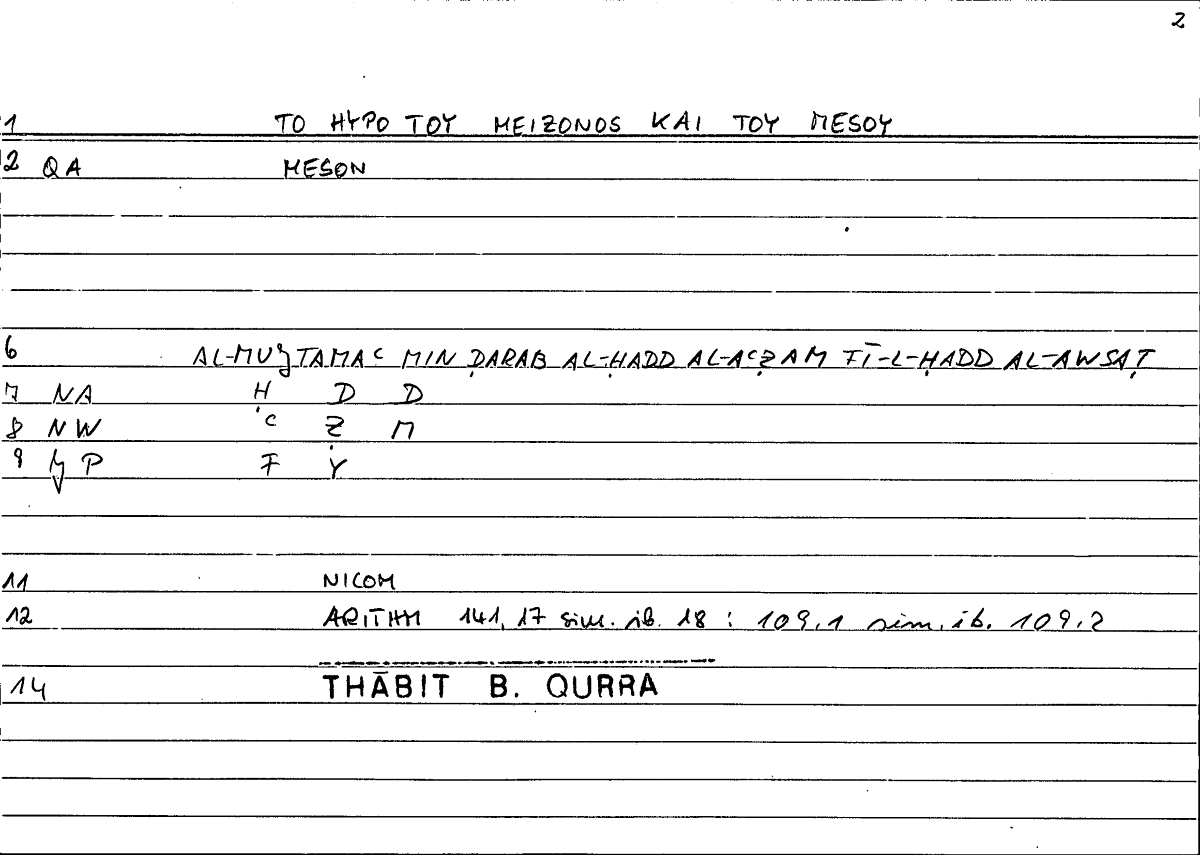 2
1 TO HYPO TOY MEIZONOS KAI TOY MESOY
2 QA MESON
6 AL-MUǦTAMAʿ MIN ḌARAB AL-ḤADD AL-AʿẒAM FĪ-L-ḤADD AL-AWSAṬ
7 NA Ḥ D D
8 NW ʿ Ẓ M
9 ǦP F Y
11 NICOM
12 ARITHM 141, 17 sim. ib. 18 : 109,1 sim. ib. 109.2
14 THĀBIT B. QURRA